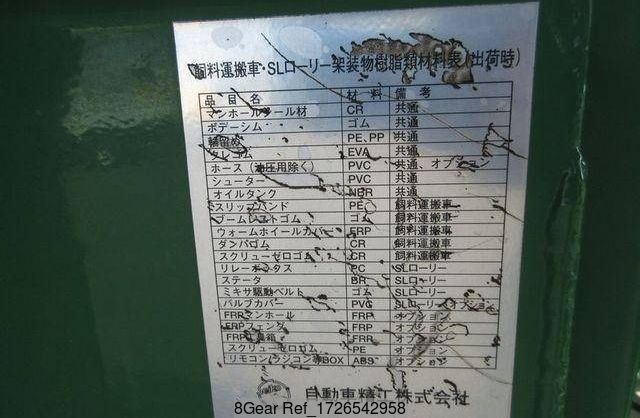 飼料運搬車・SLローリー架装物樹脂類材料表(出荷時)
品目名 材料 備考
マンホールシール材 CR 共通
ボデーシム ゴム 共通
PE、PP 共通
クレゴム EVA 共通
ホース(油圧用除く) PVC 共通、オプション
シューター PVC 共通
オイルタンク NBR 共通
スリップバンド PE 飼料運搬車
ブームレストゴム ゴム 飼料運搬車
ウォームホイールカバー FRP 飼料運搬車
ダンパゴム CR 飼料運搬車
スクリューゼロゴム CR 飼料運搬車
リレーボックス PC SLローリー
ステータ BR SLローリー
ミキサ駆動ベルト ゴム SLローリー
バルブカバー PVC SLローリーオプション
FRPマンホール FRP オプション
FRPフェンダ FRP オプション
FRP工具箱 FRR オプション
スクリューゼロゴム PE オプション
リモコン(ラジコン等)BOX ABS オプション
自動車精工株式会社
8Gear Ref_1726542958